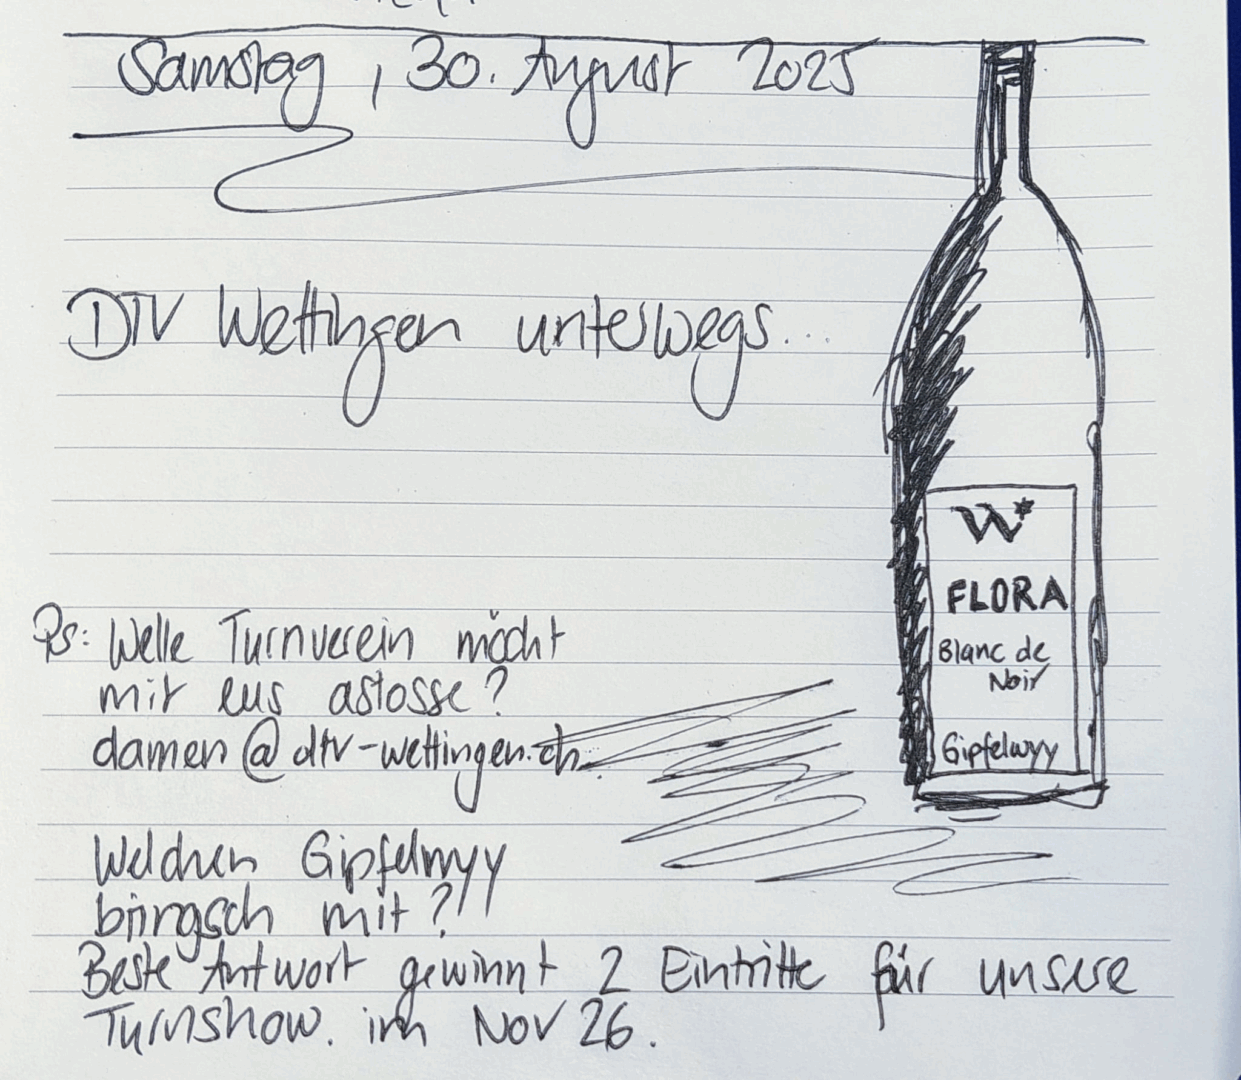 Samstag, 30. August 2025
DTV Wettingen unterwegs...
W*
FLORA
Blanc de
Noir
Gipfelwyy
Ps: Welle Turnverein möcht
mit eus astosse?
damen@dtv-wettingen.ch
Welchen Gipfelwyy
bringsch mit?!!
Beste Antwort gewinnt 2 Eintritte für unsere
Turnshow. im Nov 26.